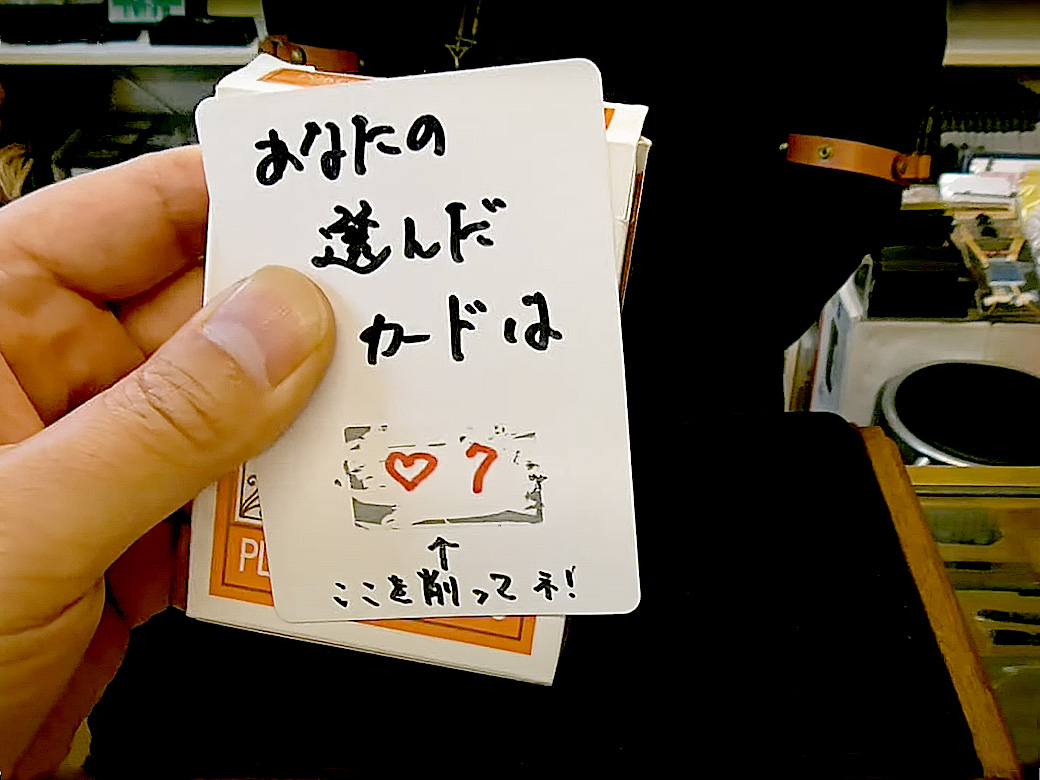 あなたの
選んだ
カードは
♡7
↑
ここを削ってネ!
PL